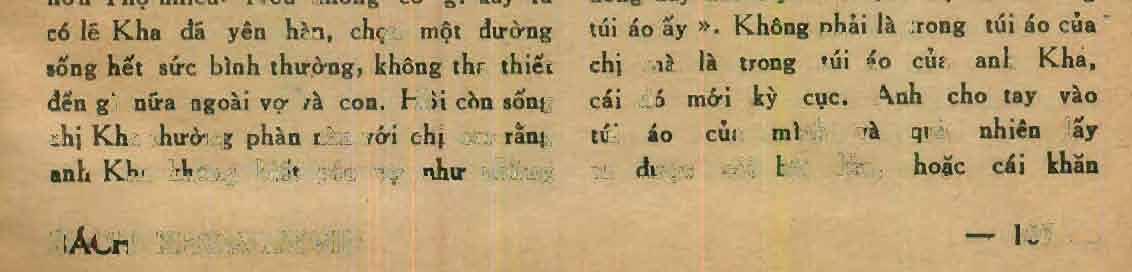 có lẽ Kha đã yên hàn, một đường
sống hết sức bình thường, không tha thiết
đến gì nữa ngoài vợ và con. Hồi còn sống
chị Kha thường phàn nàn với chị rằng
anh Kha không biết như
túi áo ấy ». Không phải là trong túi áo của
chị mà là trong túi áo của anh Kha,
cái đó mới kỳ cục. Anh cho tay vào
túi áo của mình và quả nhiên lấy
ra được hoặc cái khăn
BÁCH
—